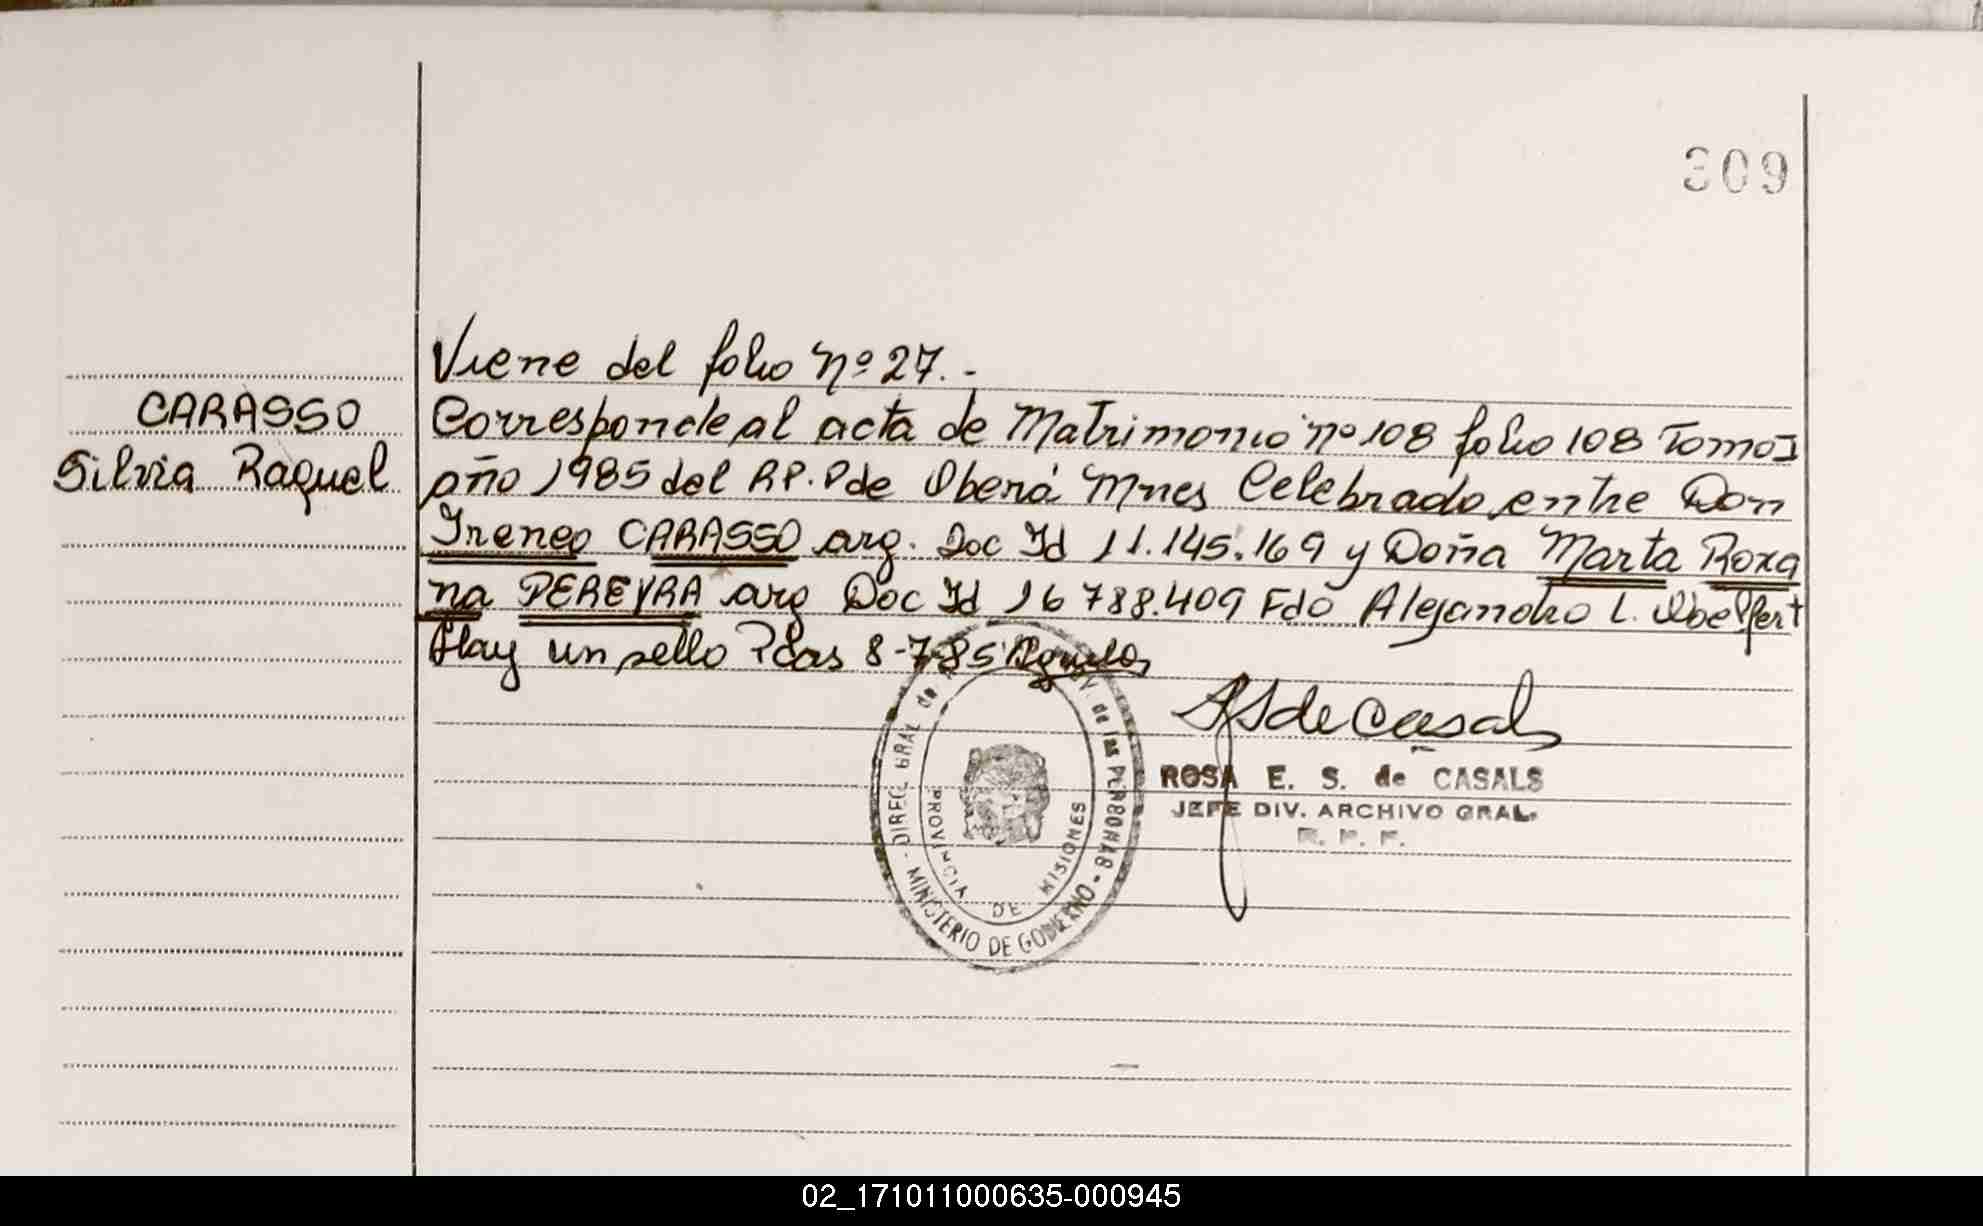 309
Viene del folio Nº 27.-
CARASSO
Silvia Raquel
Corresponde al acta de Matrimonio nº 108 folio 108 Tomo I
año 1985 del R.P. Pde Oberá Mnes Celebrado entre Don
Ireneo CARASSO arg. Doc Id 11.145.169 y Doña Marta Roxa
na PEREYRA arg Doc Id 16 788.409 Fdo Alejandro L.
Hay un sello Pdas 8-7-85
DIREC. GRAL de
Y de las PERSONAS
- MINISTERIO DE GOBIERNO -
PROVINCIA DE MISIONES
de Casals
ROSA E. S. de CASALS
JEFE DIV. ARCHIVO GRAL.
R. P. P.
02_171011000635-000945